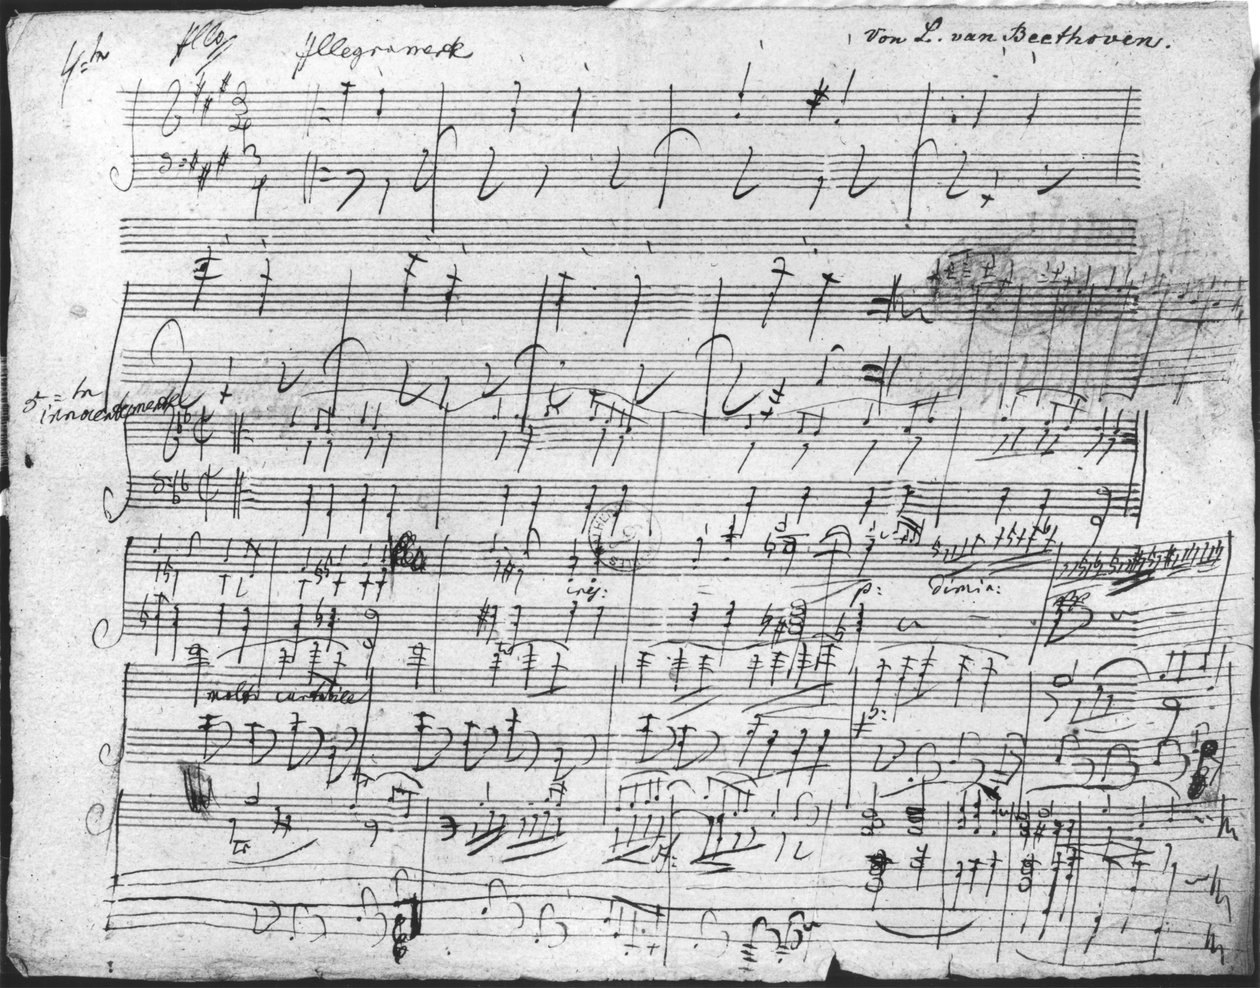 4=tn
Allo
Allegramente
Von L. van Beethoven.
5=tn
innocentemente
cres:
p:
dimin:
molto cantabile
p:
tr